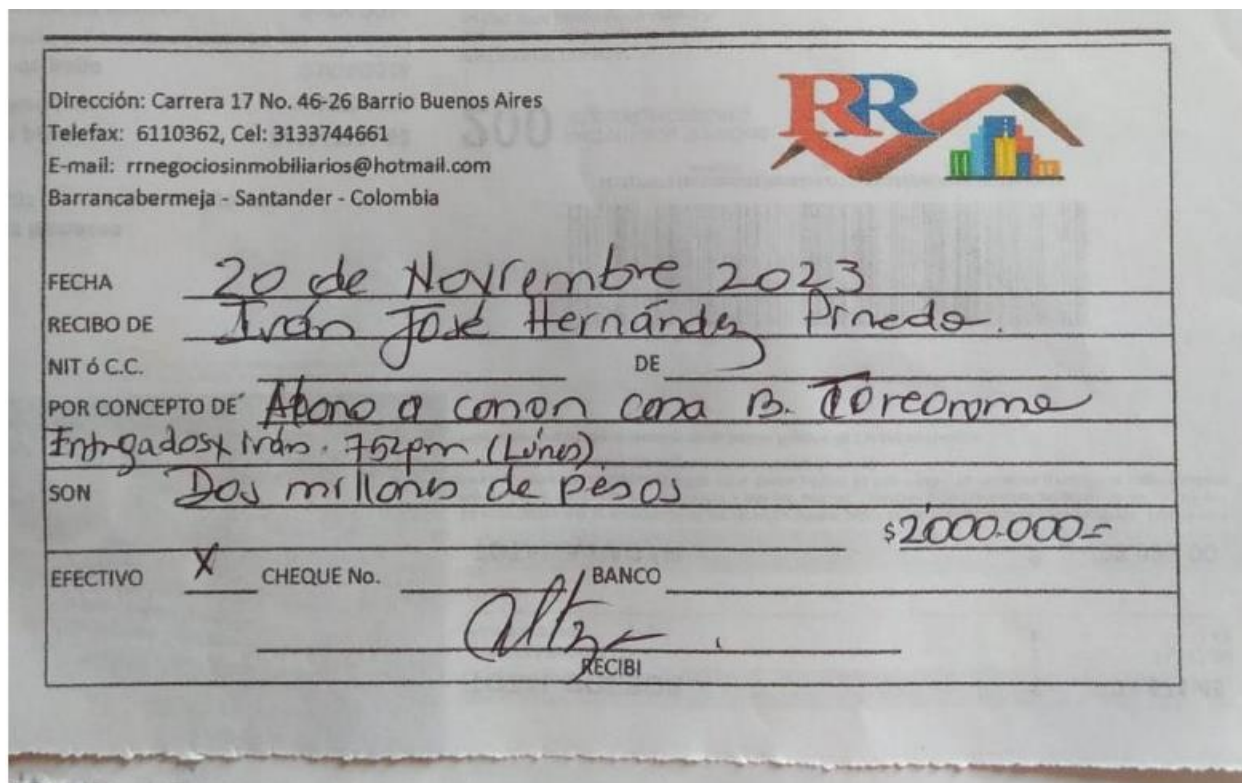 Dirección: Carrera 17 No. 46-26 Barrio Buenos Aires
Telefax: 6110362, Cel: 3133744661
E-mail: rrnegociosinmobiliarios@hotmail.com
Barrancabermeja - Santander - Colombia
RR
FECHA 20 de Noviembre 2023
RECIBO DE Iván José Hernández Pinedo.
NIT ó C.C. DE
POR CONCEPTO DE Abono a canon casa B. Torcoroma
Entregados x Iván. 752pm (Lunes)
SON Dos millones de pesos
$2'000.000=
EFECTIVO X CHEQUE No. BANCO
RECIBI